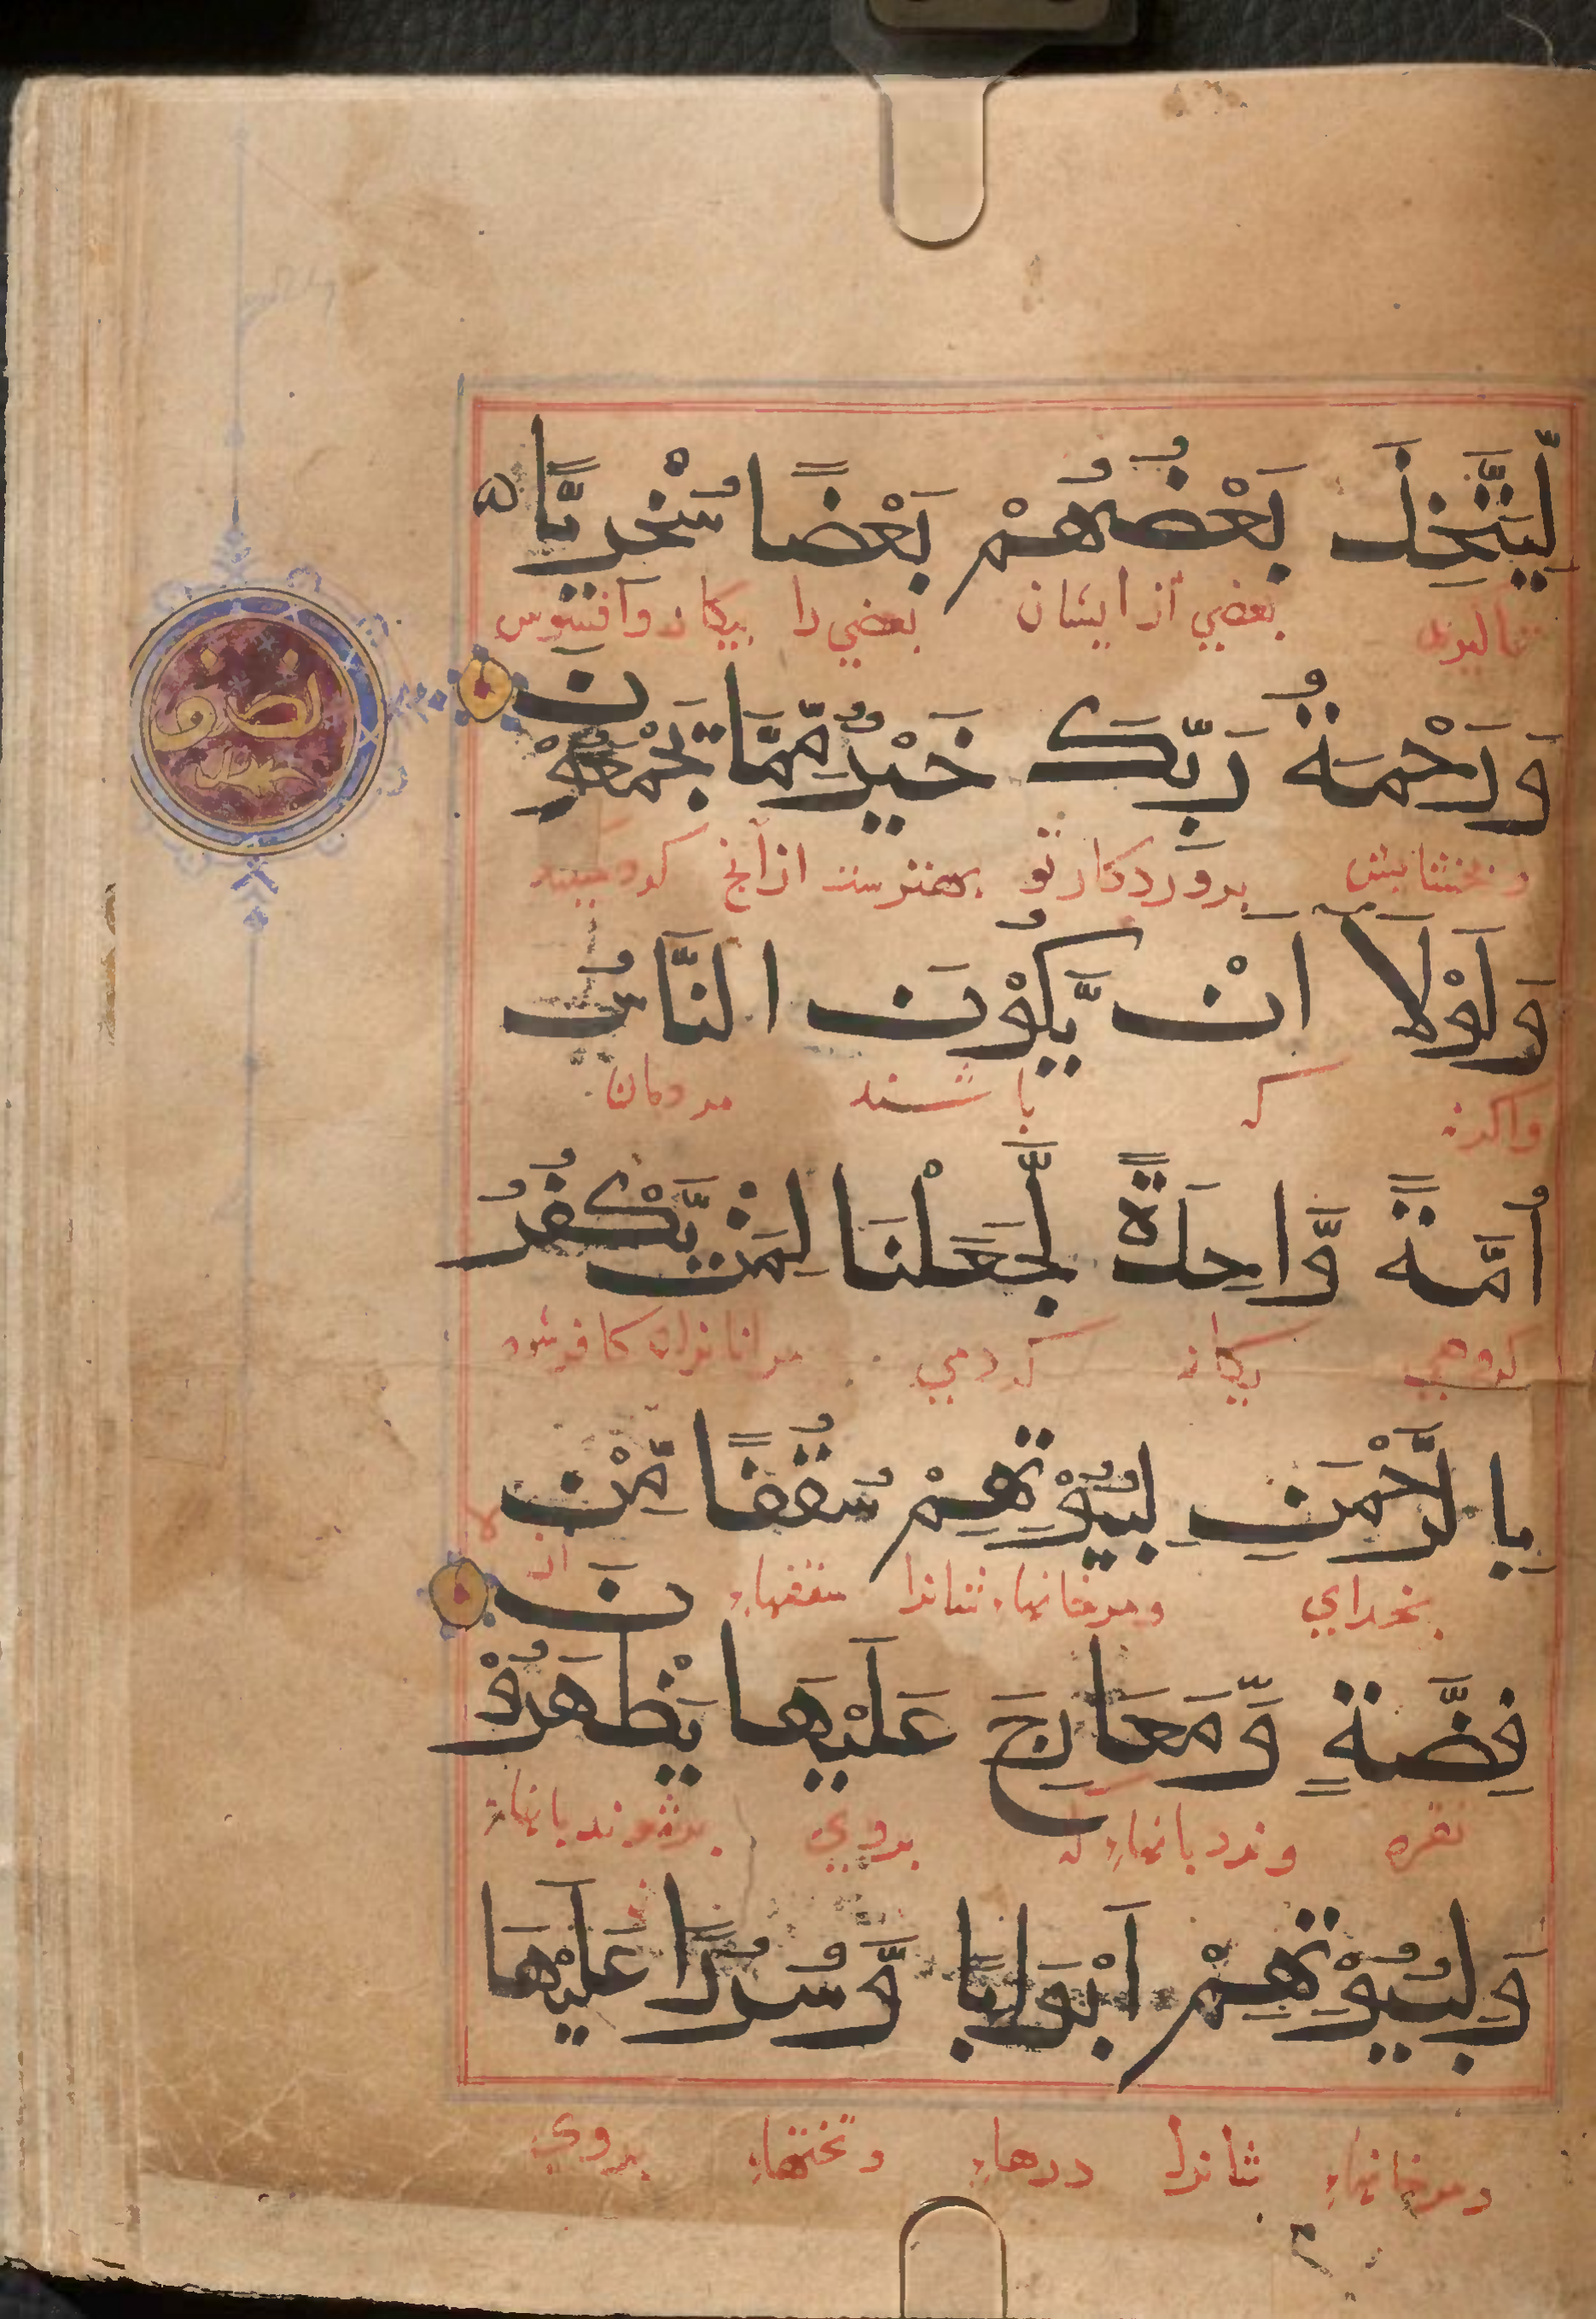 لِّيَتَّخِذَ بَعْضُهُمْ بَعْضًا سُخْرِيًّا
بعضي از ايشان بعضي را بيكار وافسوس
وَرَحْمَةُ رَبِّكَ خَيْرٌ مِّمَّا يَجْمَعُوْنَ
وبخشايش پروردكار تو بهترست از آنچ
وَلَوْلَآ اَنْ يَّكُوْنَ النَّاسُ
واكرنه كه باشند مردمان
اُمَّةً وَّاحِدَةً لَّجَعَلْنَا لِمَنْ يَّكْفُرُ
كروهي يكانه كردمي مرانانرا كه كافر شود
بِالرَّحْمٰنِ لِبُيُوْتِهِمْ سُقُفًا مِّنْ
بخداي ومرخانهاء شانرا سقفهاء از
فِضَّةٍ وَّمَعَارِجَ عَلَيْهَا يَظْهَرُوْنَ
نقره ونردبانهاء كه بروي برشوند بانهاء
وَلِبُيُوْتِهِمْ اَبْوَابًا وَّسُرُرًا عَلَيْهَا
ومرخانهاء شانرا درهاء وتختهاء بروي
نصف